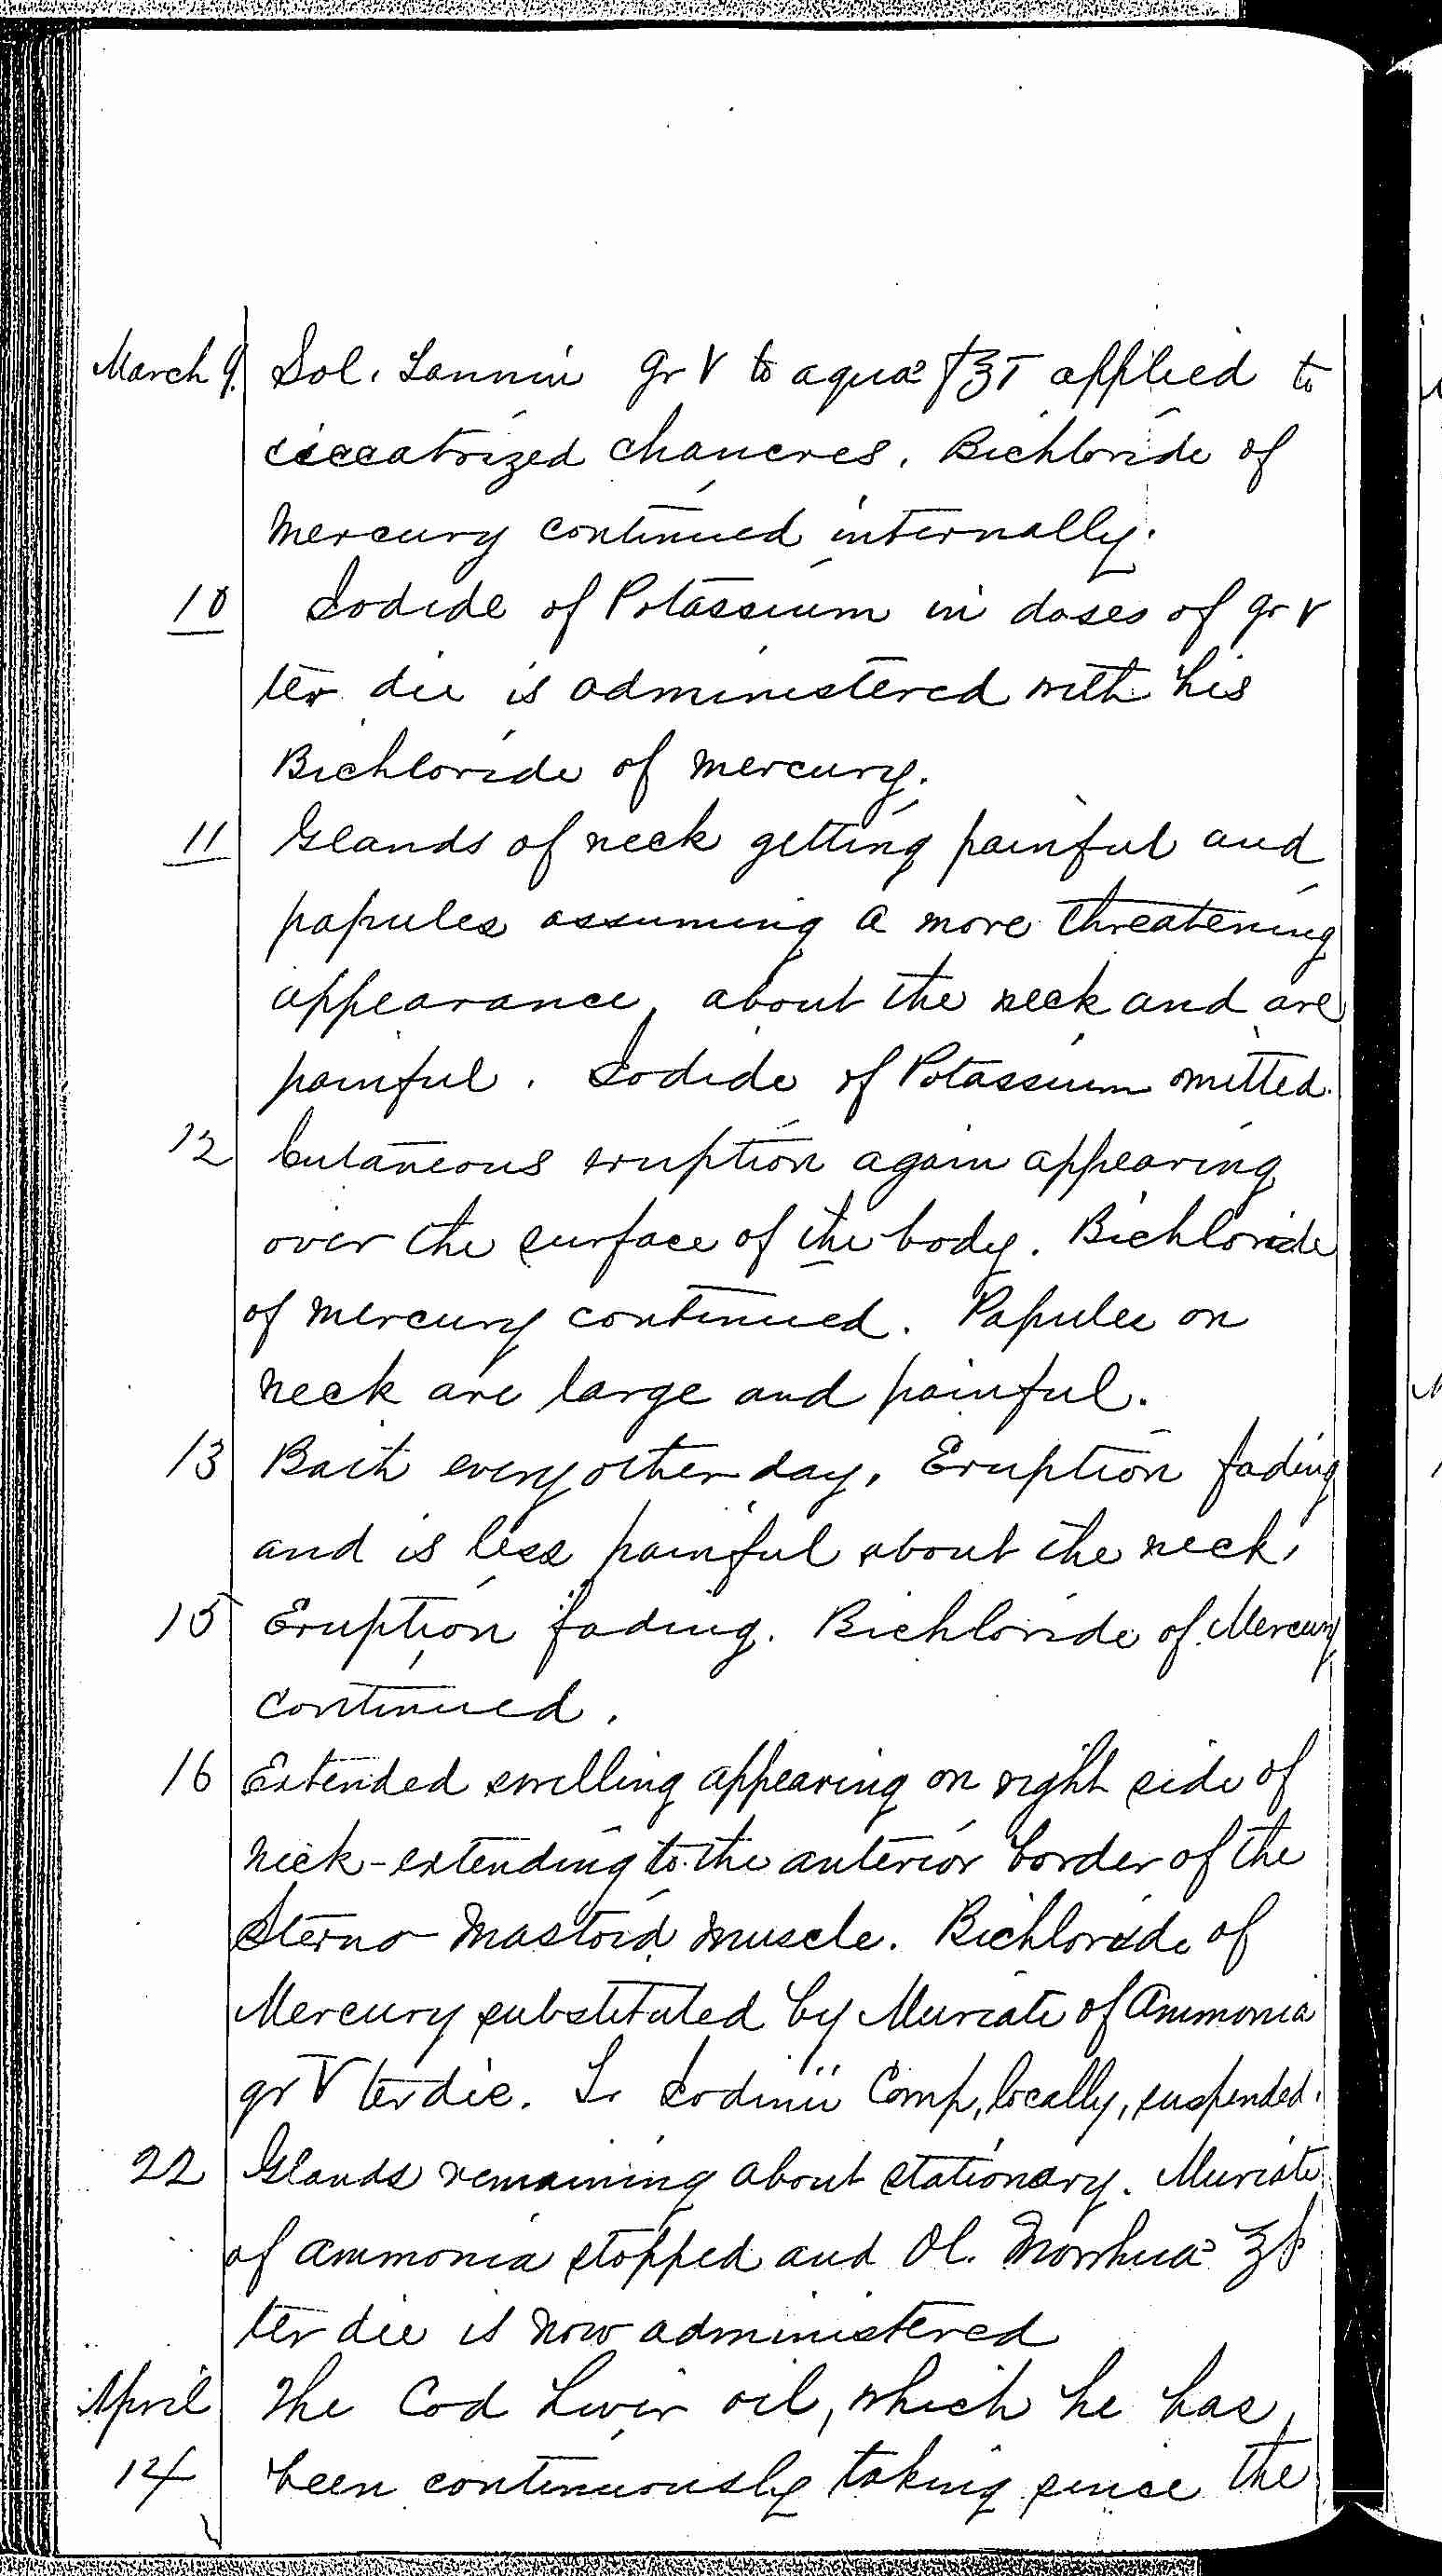 March 9. Sol. Tannin gr V to aquae f℥T applied to
ciccatrized chancres. Bichloride of
Mercury continued internally.
10 Iodide of Potassium in doses of gr V
ter die is administered with his
Bichloride of Mercury.
11 Glands of neck getting painful and
papules assuming a more threatening
appearance, about the neck and are
painful. Iodide of Potassium omitted.
12 Cutaneous eruption again appearing
over the surface of the body. Bichloride
of Mercury continued. Papules on
neck are large and painful.
13 Bath every other day. Eruption fading
and is less painful about the neck.
15 Eruption fading. Bichloride of Mercury
continued.
16 Extended swelling appearing on right side of
neck - extending to the anterior border of the
Sterno Mastoid muscle. Bichloride of
Mercury substituted by Muriate of Ammonia
gr V ter die. Tr Iodinii Comp, locally, suspended.
22 Glands remaining about stationary. Muriate
of Ammonia stopped and Ol. Morrhuae
ter die is now administered
April The Cod Liver oil, which he has,
14 been continuously taking since the